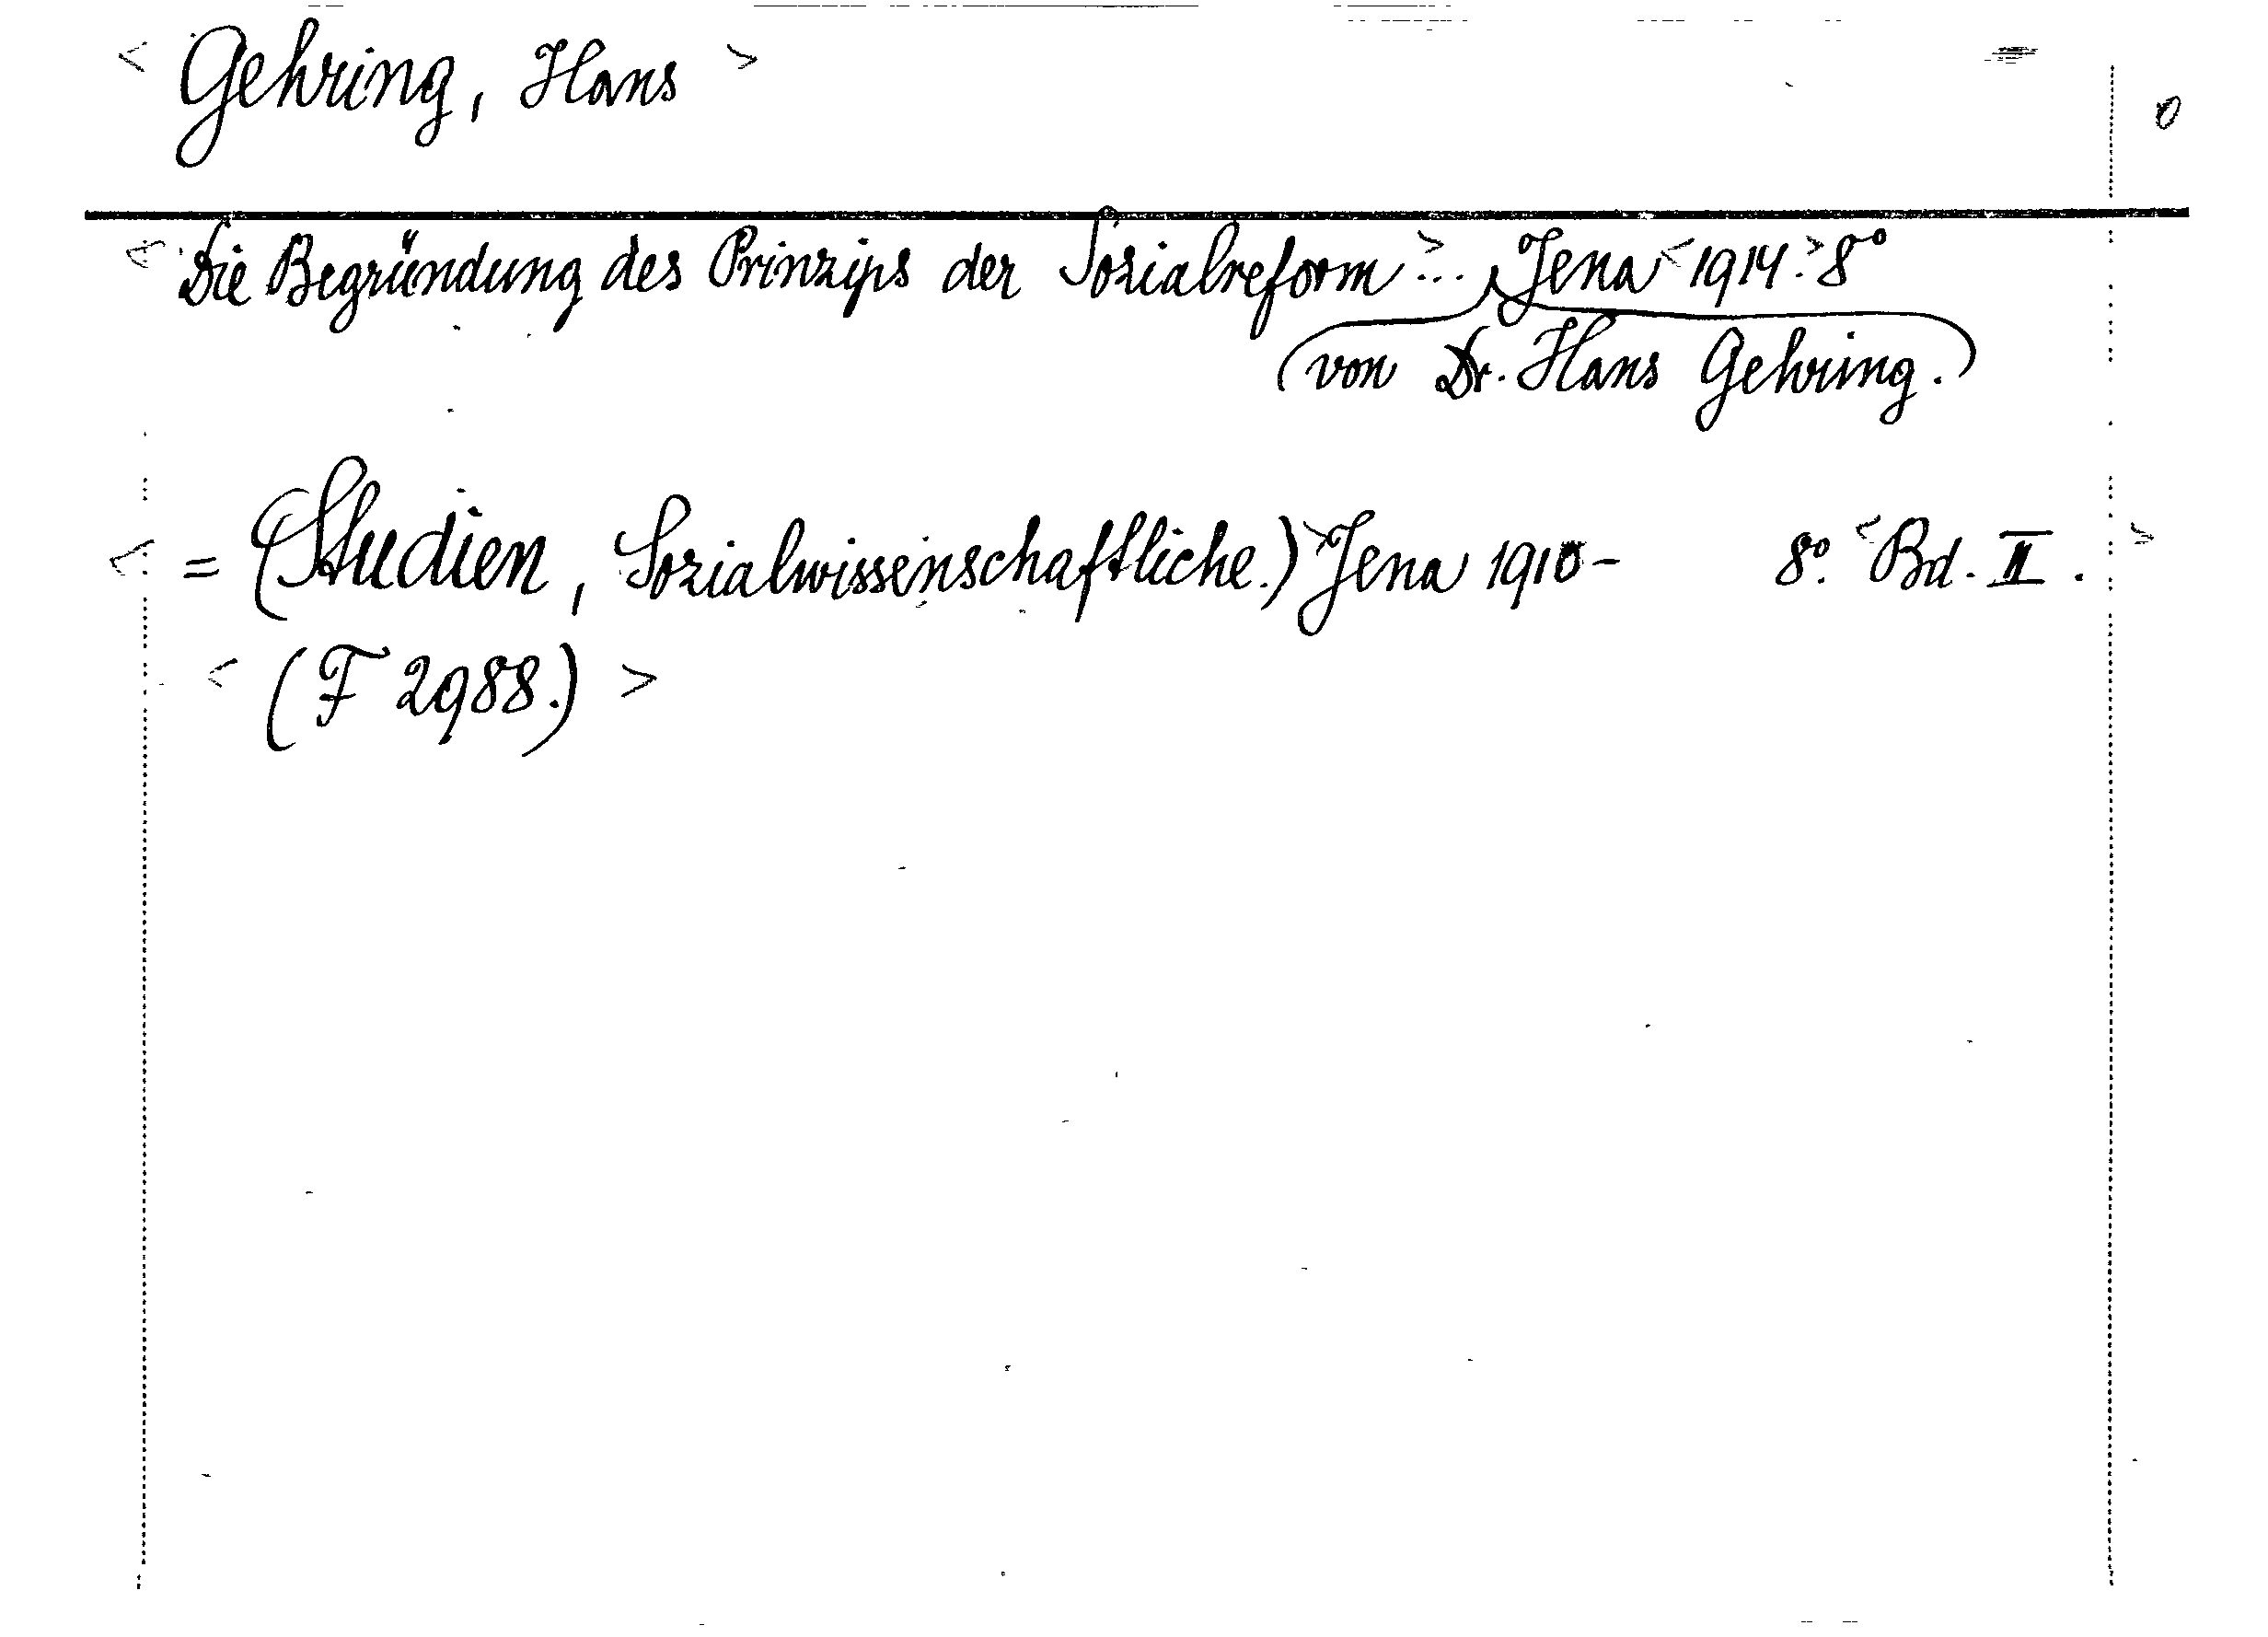 < Gehring, Hans >
0
< Die Begründung des Prinzips der Sozialreform > ... Jena < 1914. > 8°
(von Dr. Hans Gehring.)
< = (Studien, Sozialwissenschaftliche.) > Jena 1910- 8°. < Bd. II. >
< (F 2988.) >